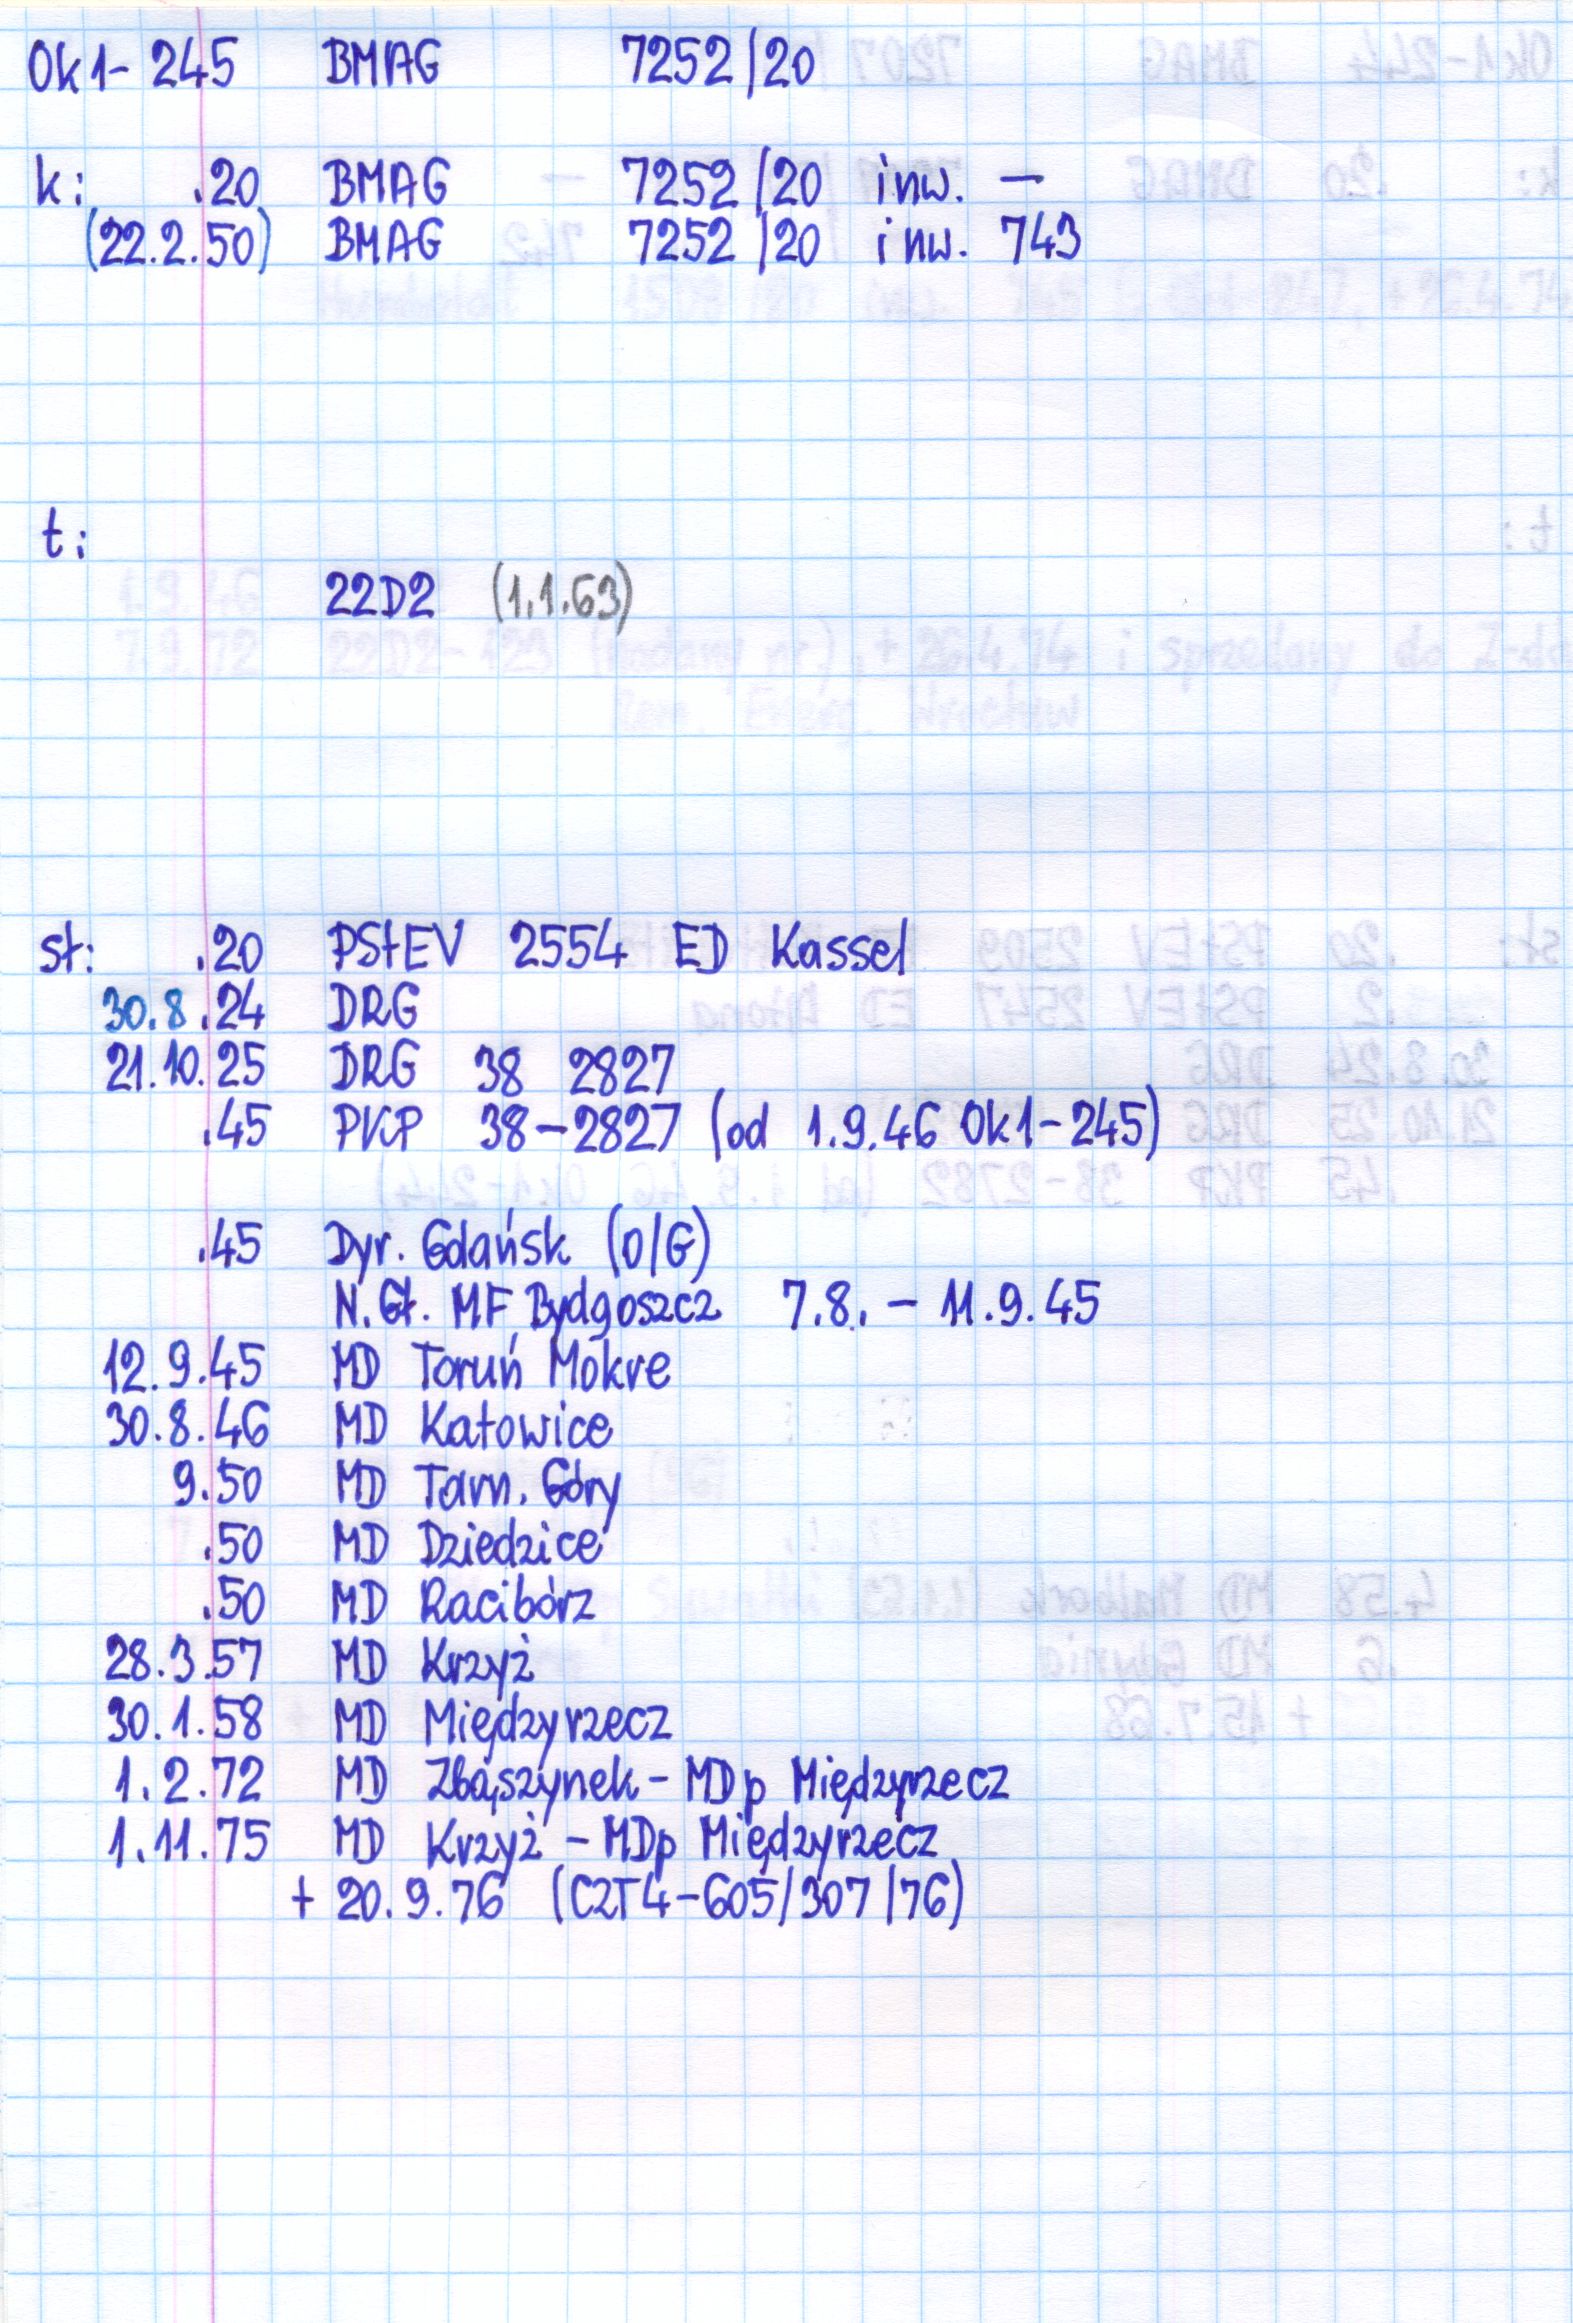 Ok1-245 BMAG 7252/20
k: .20 BMAG 7252/20 inw. —
(22.2.50) BMAG 7252/20 inw. 743
t:
22D2 (1.1.63)
st: .20 PStEV 2554 ED Kassel
30.8.24 DRG
21.10.25 DRG 38 2827
.45 PKP 38-2827 (od 1.9.46 Ok1-245)
.45 Dyr. Gdańsk (O/G)
N.Gł. MF Bydgoszcz 7.8. - 11.9.45
12.9.45 MD Toruń Mokre
30.8.46 MD Katowice
9.50 MD Tarn. Góry
.50 MD Dziedzice
.50 MD Racibórz
28.3.57 MD Krzyż
30.1.58 MD Międzyrzecz
1.2.72 MD Zbąszynek - MDp Międzyrzecz
1.11.75 MD Krzyż - MDp Międzyrzecz
+ 20.9.76 (CZT4-605/307/76)